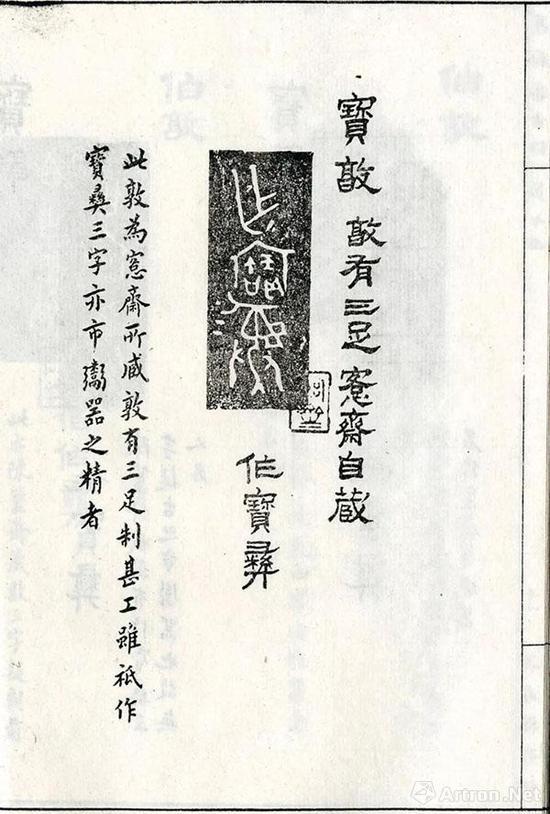 寶敦 敦有三足 愙齋自藏
乍寶彝
作寶彝
此敦為愙齋所藏敦有三足制甚工雖祇作
寶彝三字亦市鬻器之精者
Artron.Net